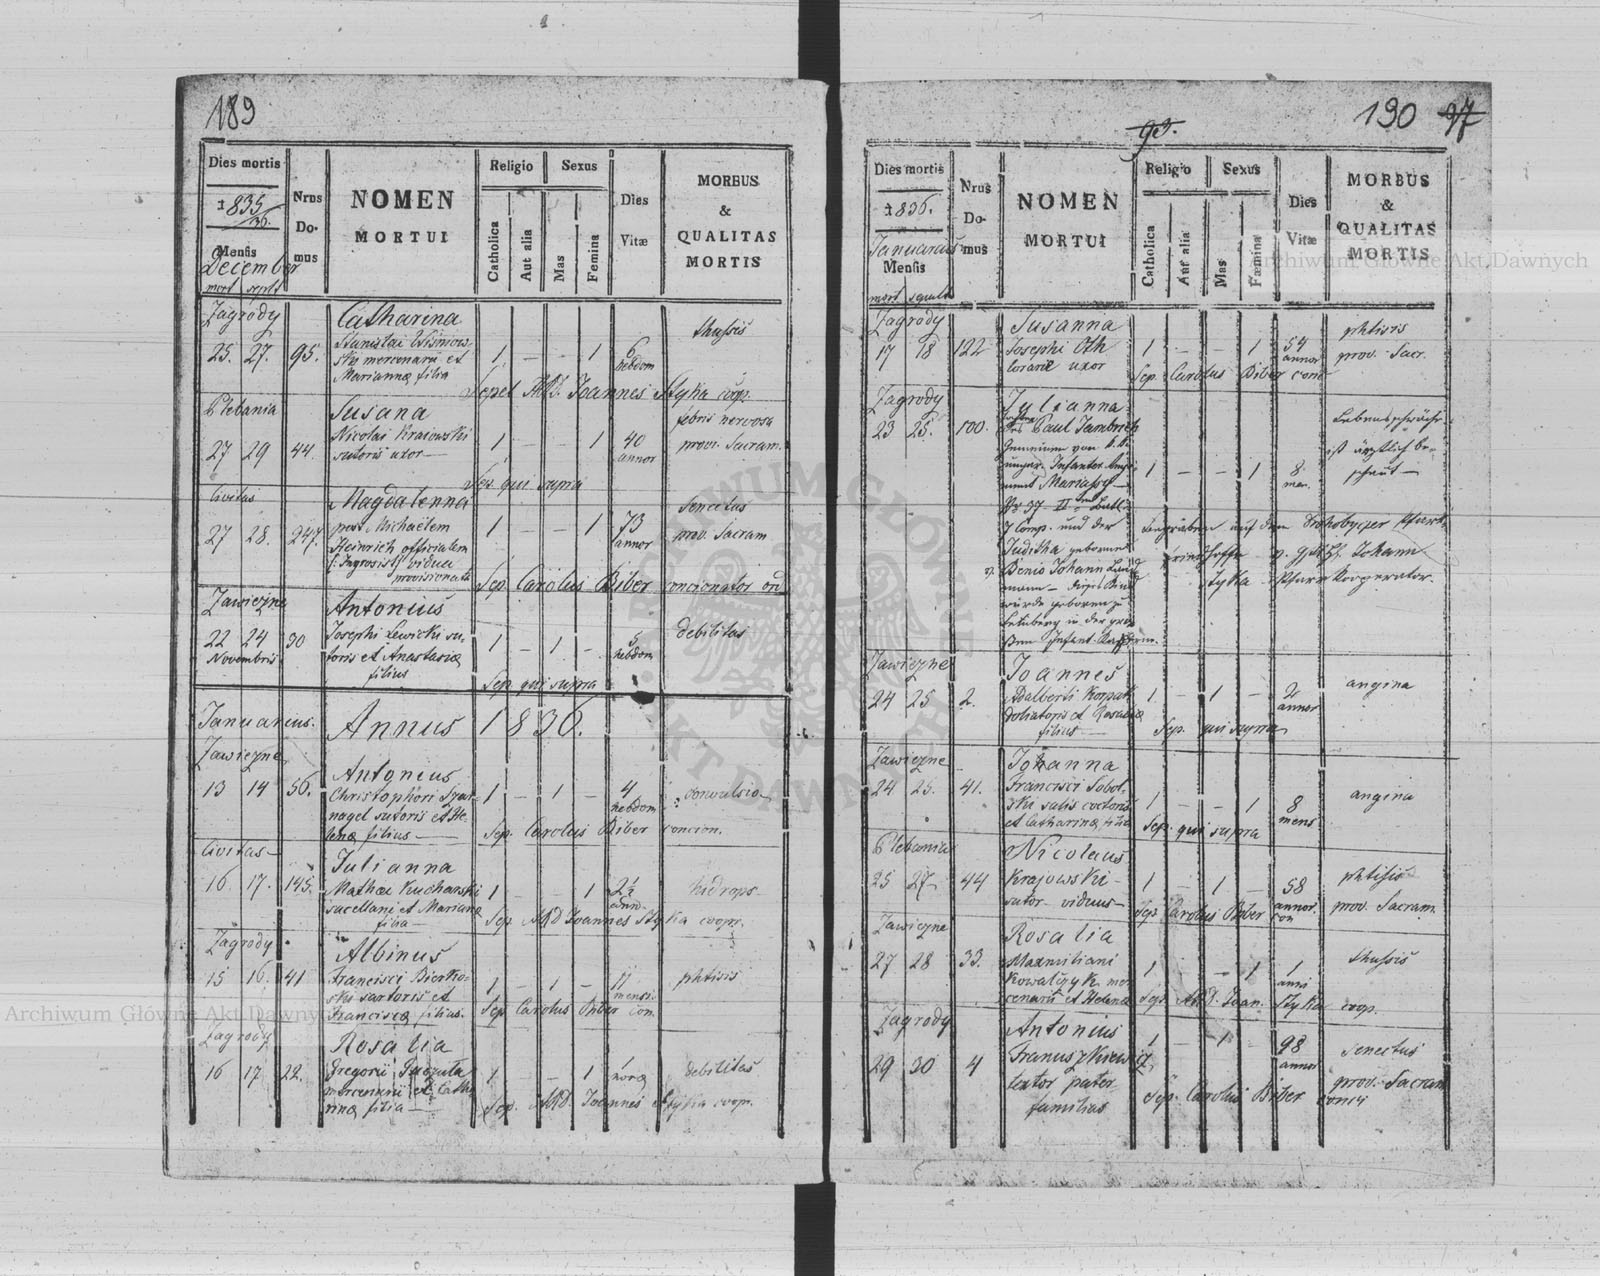 189
Dies mortis
1835/36.
Mensis
December
mort sept
Nrus
Do-
mus
NOMEN
MORTUI
Religio
Catholica
Aut alia
Sexus
Mas
Femina
Dies
Vitæ
MORBUS
&
QUALITAS
MORTIS
Zagrody
25. 27. 95.
Catharina
Stanislai
ski mercenarii et
Mariannæ filia
1 — — 1 6
hebdom
thussis
Sepel. ARD. Joannes Styka coop.
Plebania
27 29 44.
Susana
Nicolai Kraiowski
sutoris uxor —
1 — — 1 40
annor
febris nervosa
prov. Sacram.
Sep. qui supra
Civitas
27 28. 247.
Magdalenna
post Michaëlem
Heinrich officialem
vidua
provisionata
1 — — 1 73
annor
Senectus
prov. Sacram
Sep. Carolus Biber concionator ord
Zawiezne
22 24 30
Novembris
Antonius
Josephi Lewicki su-
toris et Anastasiæ
filius
1 — 1 — 5
hebdom
debilitas
Sep. qui supra
Januarius. Annus 1836.
Zawiezne
13 14 56.
Antonius
Christophori
nagel sutoris et He-
lenæ filius —
1 — 1 — 4
hebdom
convulsio
Sep. Carolus Biber concion.
Civitas —
16. 17. 145.
Julianna
Mathæi Kucharski
sacellani et Mariannæ
filia —
1 — — 1 2½
ann
hidrops
Sep. ARD Joannes Styka coopr.
Zagrody
15 16. 41
Albinus
Francisci
ski sartoris et
Franciscæ filius.
1 — 1 — 11
mensi.
phtisis
Sep. Carolus Biber con.
Zagrody
16 17 22.
Rosalia
Gregorii
mercenarii et Catha
rinæ filia —
1 — — 1 1
horæ
debilitas
Sep. ARD. Joannes Styka coopr.
190 97
93.
Dies mortis
1836.
Januarius
Mensis
mort sepult
Nrus
Do-
mus
NOMEN
MORTUI
Religio
Catholica
Aut alia
Sexus
Mas
Fæmina
Dies
Vitæ
MORBUS
&
QUALITAS
MORTIS
Zagrody
17 18 122
Susanna
Josephi Oth
uxor
1 — — 1 54
annor
phtisis
prov. Sacr.
Sep. Carolus Biber conc
Zagrody
23 25. 100.
Julianna
des Paul Jambrich
Gemeinen von k. k.
ungar. Infanter. Regi-
ment Mariassy —
Nr 37 II
7 Comp. und der
Juditha geborene
Johann
1 — — 1 8
men.
Lebensschwäche
ist ärztlich be-
schaut —
begraben auf dem Drohobyczer
Johann
Styka Pfarr Kooperator.
Zawiezne
24 25 2.
Joannes
Adalberti Korpak
doliatoris et Rosaliæ
filius —
1 — 1 — 2
annor
angina
Sep. qui supra
Zawiezne
24 25. 41.
Johanna
Francisci Sobot-
ski salis coctoris
et Catharinæ filia
1 — — 1 8
mens
angina
Sep. qui supra
Plebania
25 27 44
Nicolaus
Krajowski —
sutor viduus —
1 — 1 — 58
annor.
phtisis
prov. Sacram.
Sep. Carolus Biber con
Zawiezne
27 28 33.
Rosalia
Maxmiliani
Kowalczyk mer-
cenarii et Helenæ
1 — 1 1
anni
thussis
Sep. ARD. Joan. Styka coop.
Zagrody
29 30 4
Antonius
textor pater
familias
1 — 1 — 98
annor
Senectus
prov. Sacram
Sep. Carolus Biber conci
Archiwum Główne Akt Dawnych
Archiwum Główne Akt Dawnych
ARCHIWUM GŁÓWNE AKT DAWNYCH